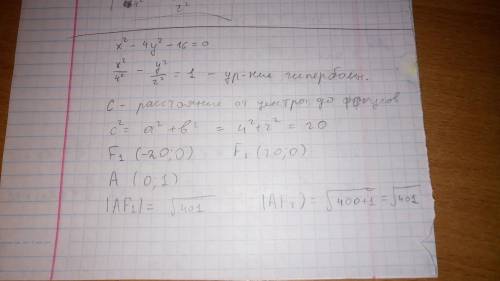 4²      2²
x² - 4y² - 16 = 0
x²/4² - y²/2² = 1 - ур-ние гиперболы.
c - расстояние от центра до фокусов
c² = a² + b² = 4² + 2² = 20
F₁ (-20; 0)      F₂ (20; 0)
A (0; 1)
|AF₁| = √401      |AF₂| = √400+1 = √401